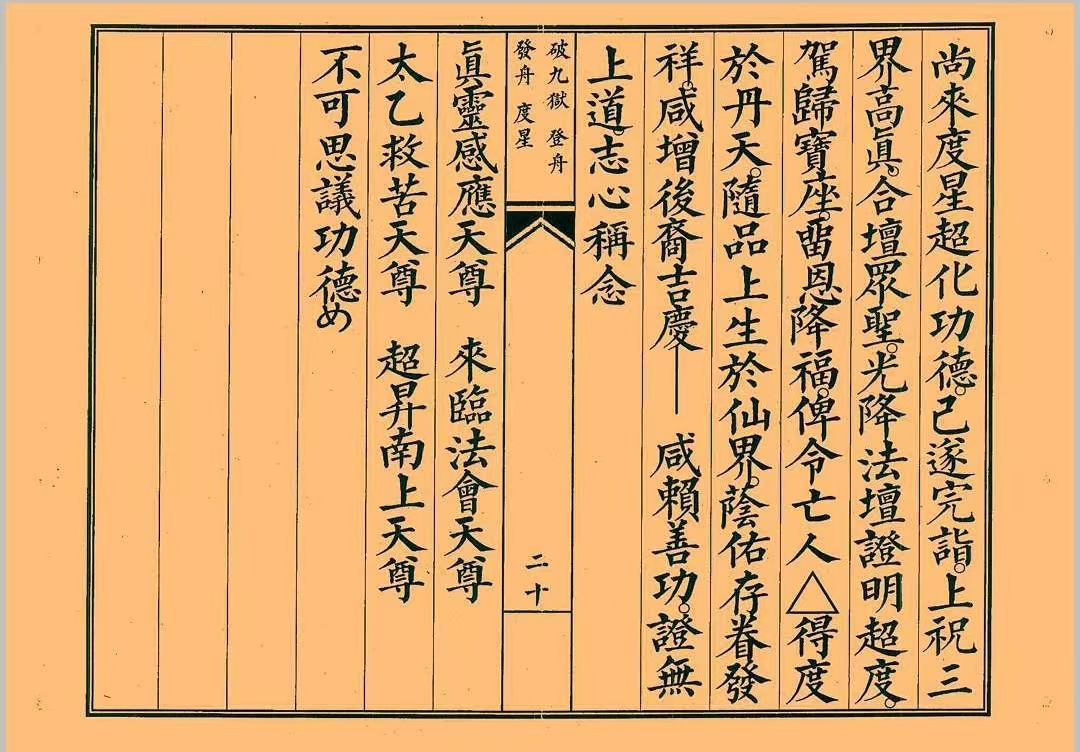 尚來度星超化功德。已遂完詣。上祝三
界高眞。合壇眾聖。光降法壇證明超度。
駕歸寶座。畱恩降福。俾令亡人△得度
於丹天。隨品上生於仙界。蔭佑存眷發
祥。咸增後裔吉慶——　咸賴善功。證無
上道。志心稱念
破九獄　登舟
發舟　度星
二十
眞靈感應天尊　來臨法會天尊
太乙救苦天尊　超昇南上天尊
不可思議功德め